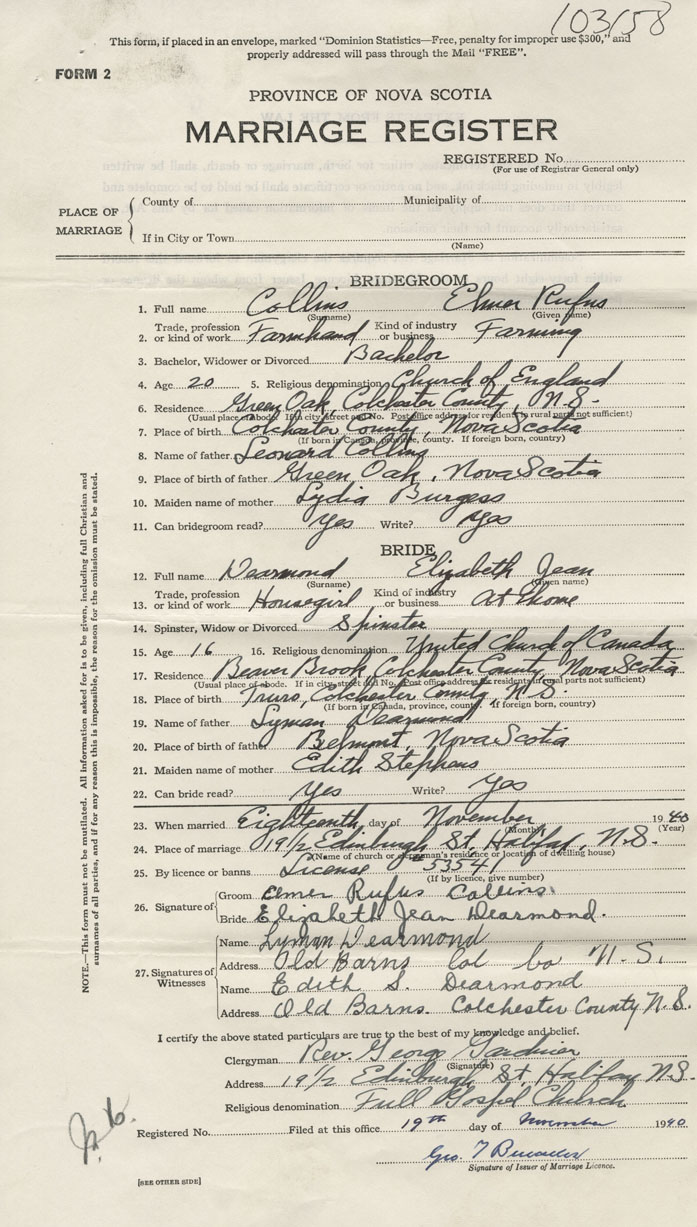 103158
This form, if placed in an envelope, marked “Dominion Statistics—Free, penalty for improper use $300,” and
properly addressed will pass through the Mail “FREE”.
FORM 2
PROVINCE OF NOVA SCOTIA
MARRIAGE REGISTER
REGISTERED No.
(For use of Registrar General only)
PLACE OF MARRIAGE
County of Municipality of
If in City or Town
(Name)
BRIDEGROOM
1. Full name Collins Elmer Rufus
(Surname) (Given name)
2. Trade, profession or kind of work Farmhand Kind of industry or business Farming
3. Bachelor, Widower or Divorced Bachelor
4. Age 20 5. Religious denomination Church of England
6. Residence Green Oak, Colchester County, N.S.
(Usual place of abode. If in city, street and No. Post office address for residents in rural parts not sufficient)
7. Place of birth Colchester County, Nova Scotia
(If born in Canada, province, county. If foreign born, country)
8. Name of father Leonard Collins
9. Place of birth of father Green Oak, Nova Scotia
10. Maiden name of mother Lydia Burgess
11. Can bridegroom read? Yes Write? Yes
BRIDE
12. Full name Dearmond Elizabeth Jean
(Surname) (Given name)
13. Trade, profession or kind of work Housegirl Kind of industry or business At Home
14. Spinster, Widow or Divorced Spinster
15. Age 16 16. Religious denomination United Church of Canada
17. Residence Beaver Brook, Colchester County, Nova Scotia
(Usual place of abode. If in city, street and No. Post office address for residents in rural parts not sufficient)
18. Place of birth Truro, Colchester County, N.S.
(If born in Canada, province, county. If foreign born, country)
19. Name of father Lyman Dearmond
20. Place of birth of father Belmont, Nova Scotia
21. Maiden name of mother Edith Stephens
22. Can bride read? Yes Write? Yes
23. When married Eighteenth day of November 1940
(Month) (Year)
24. Place of marriage 19½ Edinburgh St, Halifax, N.S.
(Name of church or clergyman's residence or location of dwelling house)
25. By licence or banns License 53541
(If by licence, give number)
26. Signature of
Groom Elmer Rufus Collins.
Bride Elizabeth Jean Dearmond.
27. Signatures of Witnesses
Name Lyman Dearmond
Address Old Barns Col Co N.S.
Name Edith S. Dearmond
Address Old Barns. Colchester County N.S.
I certify the above stated particulars are true to the best of my knowledge and belief.
Clergyman Rev. George Gardiner
(Signature)
Address 19½ Edinburgh St, Halifax N.S.
Religious denomination Full Gospel Church
Registered No. Filed at this office 19th day of November 1940
Geo. T
Signature of Issuer of Marriage Licence.
[SEE OTHER SIDE]
NOTE.—This form must not be mutilated. All information asked for is to be given, including full Christian and
surnames of all parties, and if for any reason this is impossible, the reason for the omission must be stated.